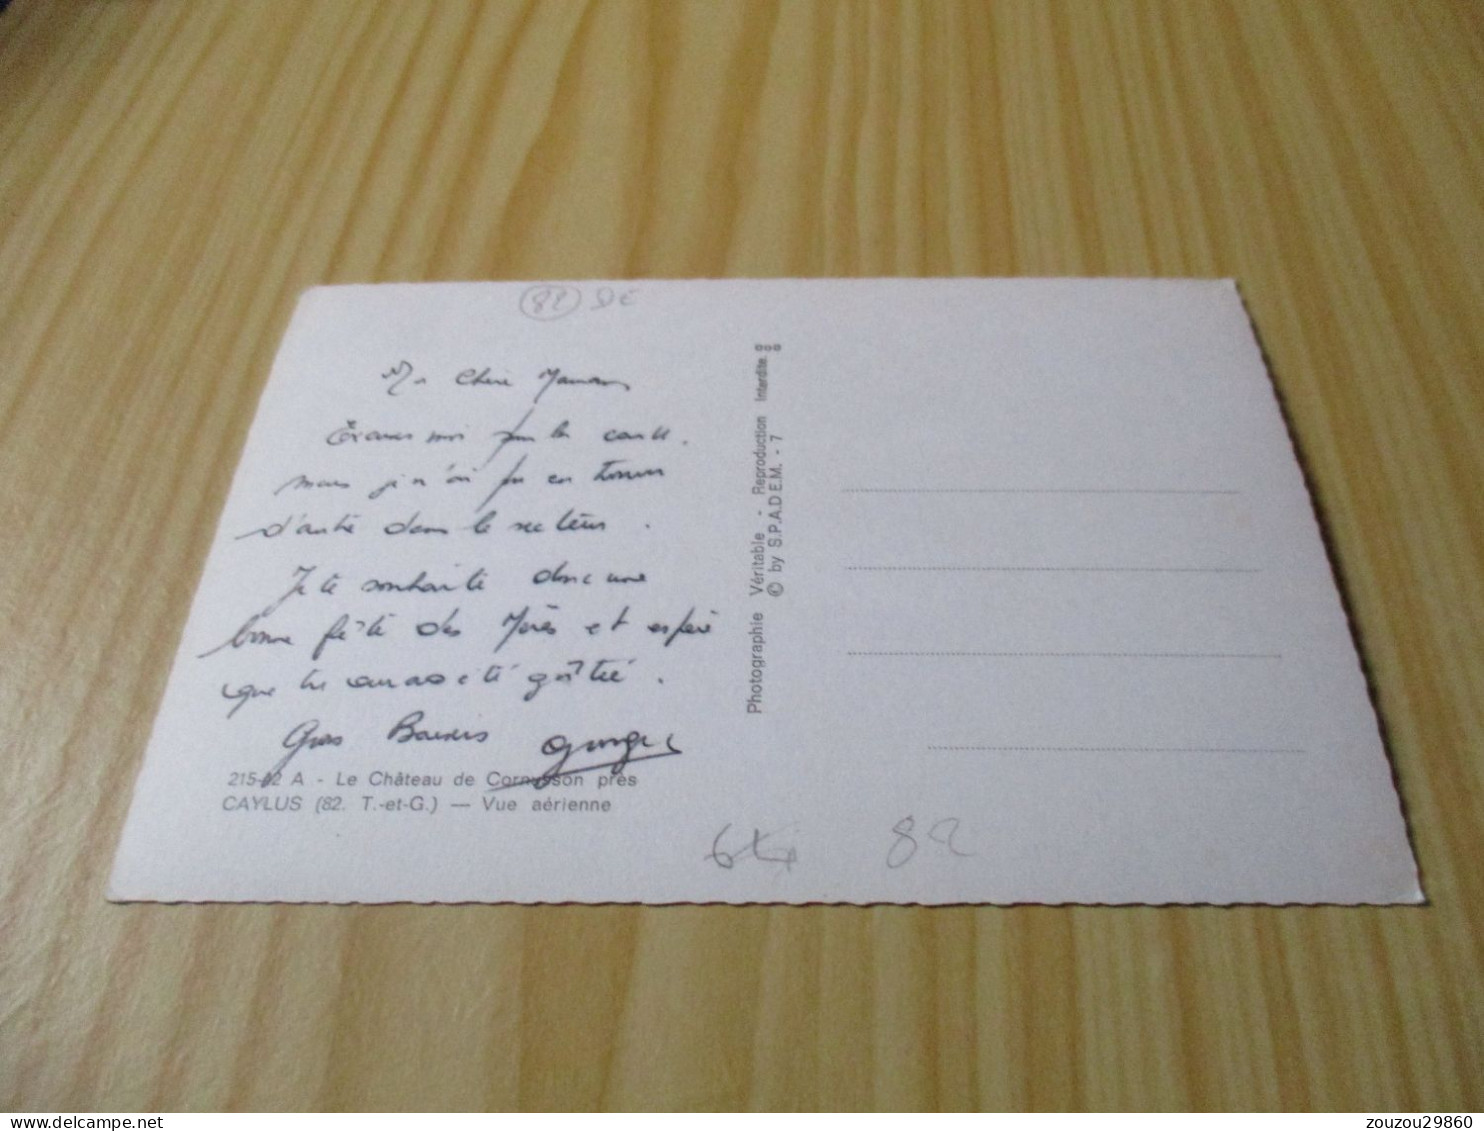 82
Ma Chère Maman
Excuses moi pour la carte.
mais je n'ai pu en trouver
d'autre dans le secteur.
Je te souhaite donc une
bonne fête des Mères et espère
que tu auras été gâtée.
Gros Baisers Georges
215-82 A - Le Château de Cornusson près
CAYLUS (82. T.-et-G.) — Vue aérienne
Photographie Véritable - Reproduction Interdite.
© by S.P.A.D.E.M. - 7
82
zouzou29860